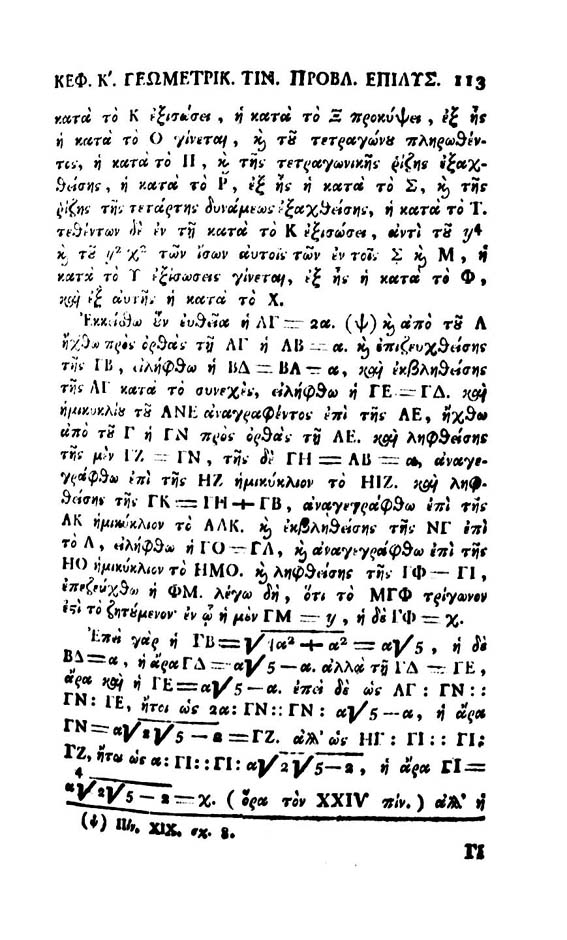 ΚΕΦ. Κ'. ΓΕΩΜΕΤΡΙΚ. ΤΙΝ. ΠΡΟΒΛ. ΕΠΙΛΥΣ. 113
κατὰ τὸ Κ ἐξισώσει, ἡ κατὰ τὸ Ξ προκύψει, ἐξ ἧς
ἡ κατὰ τὸ Ο γίνεται, ϗ τοῦ τετραγώνου πληρωθέν-
τος, ἡ κατὰ τὸ Π, ϗ τῆς τετραγωνικῆς ῥίζης ἐξαχ-
θείσης, ἡ κατὰ τὸ Ρ, ἐξ ἧς ἡ κατὰ τὸ Σ, ϗ τῆς
ῥίζης τῆς τετάρτης δυνάμεως ἐξαχθείσης, ἡ κατὰ τὸ Τ.
τεθέντων δὲ ἐν τῇ κατὰ τὸ Κ ἐξισώσει, ἀντὶ τοῦ y⁴
ϗ τοῦ y² χ² τῶν ἴσων αὐτοῖς τῶν ἐν τοῖς Σ ϗ Μ, ἡ
κατὰ τὸ Υ ἐξίσωσις γίνεται, ἐξ ἧς ἡ κατὰ τὸ Φ,
καὶ ἐξ αὐτῆς ἡ κατὰ τὸ Χ.
Ἐκκείσθω οὖν εὐθεῖα ἡ ΛΓ = 2α. (ψ) ϗ ἀπὸ τοῦ Λ
ἤχθω πρὸς ὀρθὰς τῇ ΛΓ ἡ ΛΒ = α. ϗ ἐπιζευχθείσης
τῆς ΓΒ, εἰλήφθω ἡ ΒΔ = ΒΛ = α, καὶ ἐκβληθείσης
τῆς ΛΓ κατὰ τὸ συνεχὲς, εἰλήφθω ἡ ΓΕ = ΓΔ. καὶ
ἡμικυκλίου τοῦ ΛΝΕ ἀναγραφέντος ἐπὶ τῆς ΛΕ, ἤχθω
ἀπὸ τοῦ Γ ἡ ΓΝ πρὸς ὀρθὰς τῇ ΛΕ. καὶ ληφθείσης
τῆς μὲν ΓΖ = ΓΝ, τῆς δὲ ΓΗ = ΛΒ = α, ἀναγε-
γράφθω ἐπὶ τῆς ΗΖ ἡμικύκλιον τὸ ΗΙΖ. καὶ ληφ-
θείσης τῆς ΓΚ = ΓΗ + ΓΒ, ἀναγεγράφθω ἐπὶ τῆς
ΛΚ ἡμικύκλιον τὸ ΛΛΚ. ϗ ἐκβληθείσης τῆς ΝΓ ἐπὶ
τὸ Λ, εἰλήφθω ἡ ΓΟ = ΓΛ, ϗ ἀναγεγράφθω ἐπὶ τῆς
ΗΟ ἡμικύκλιον τὸ ΗΜΟ. ϗ ληφθείσης τῆς ΓΦ = ΓΙ,
ἐπεζεύχθω ἡ ΦΜ. λέγω δὴ, ὅτι τὸ ΜΓΦ τρίγωνον
ἐστὶ τὸ ζητούμενον· ἐν ᾧ ἡ μὲν ΓΜ = y, ἡ δὲ ΓΦ = χ.
Ἐπεὶ γὰρ ἡ ΓΒ = √4α² + α² = α√5, ἡ δὲ
ΒΔ = α, ἡ ἄρα ΓΔ = α√5 — α. ἀλλὰ τῇ ΓΔ = ΓΕ,
ἄρα καὶ ἡ ΓΕ = α√5 — α. ἐπεὶ δὲ ὡς ΛΓ : ΓΝ : :
ΓΝ : ΓΕ, ἤτοι ὡς 2α : ΓΝ : : ΓΝ : α√5 — α, ἡ ἄρα
ΓΝ = α√2√5 — 2 = ΓΖ. ἀλλ' ὡς ΗΓ : ΓΙ : : ΓΙ :
ΓΖ, ἤτοι ὡς α : ΓΙ : : ΓΙ : α√2√5 — 2, ἡ ἄρα ΓΙ =
α⁴√2√5 — 2 = χ. (ὅρα τὸν XXIV πίν.) ἀλλ' ἡ
(ψ) Πίν. XIX. σχ. 8.
ΓΙ